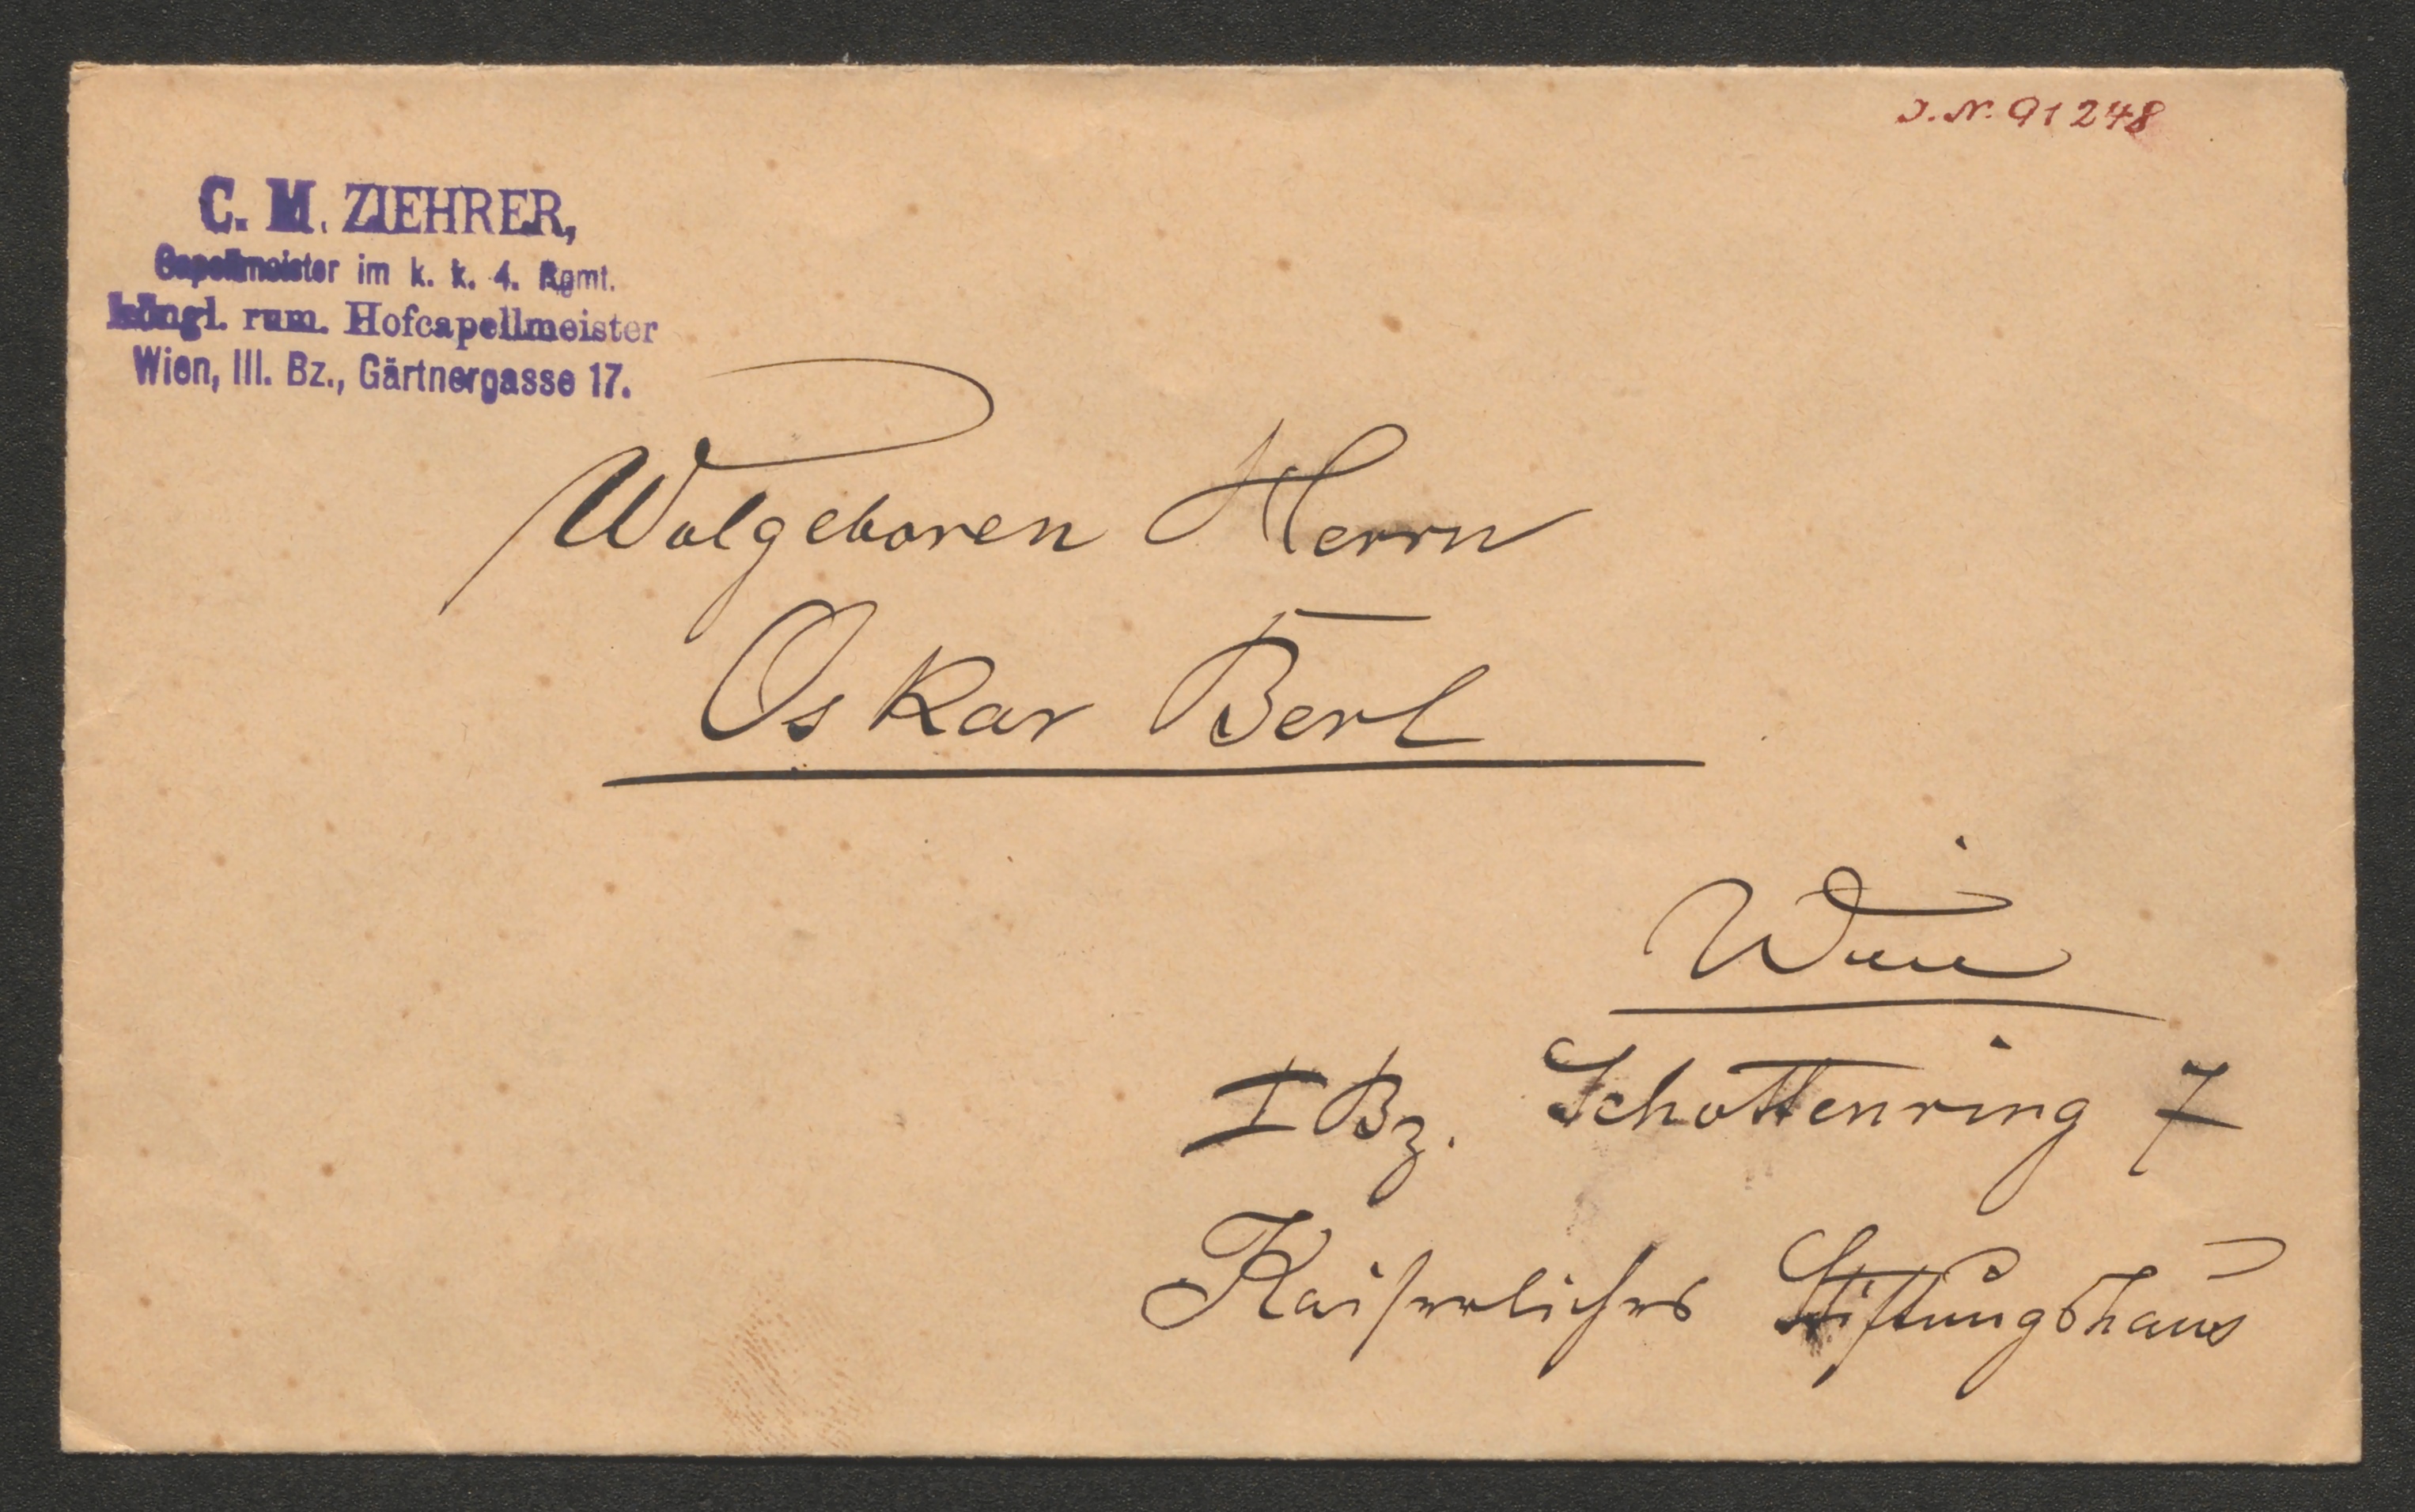 J. N. 91248
C. M. ZIEHRER,
Capellmeister im k. k. 4. Rgmt.
köngl. rum. Hofcapellmeister
Wien, III. Bz., Gärtnergasse 17.
Wolgeboren Herrn
Oskar Berl
Wien
I Bz. Schottenring 7
Kaiserliches Stiftungshaus